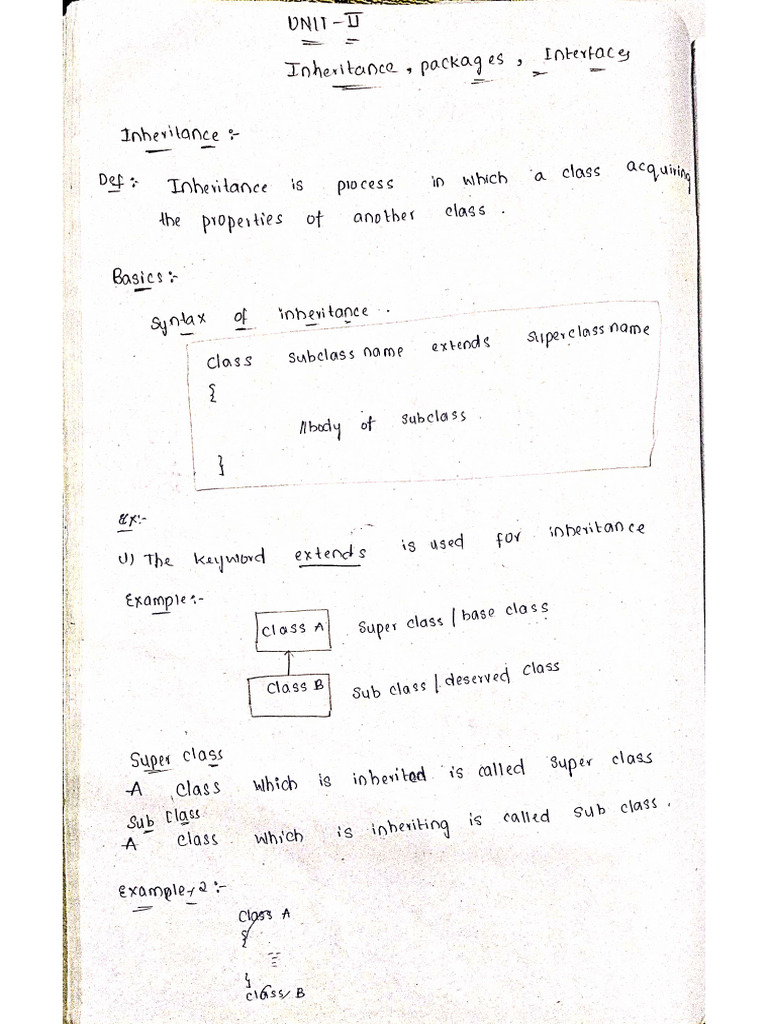 UNIT-II
Inheritance, packages, Interfaces
Inheritance :-
Def :- Inheritance is process in which a class acquiring
the properties of another class.
Basics :-
Syntax of inheritance.
Class Subclass name extends Superclass name
{
//body of subclass
}
Ex:-
1) The keyword extends is used for inheritance
Example :-
Class A Super class / base class
Class B Sub class / deserved class
Super class
A Class which is inherited is called super class
Sub Class
A class which is inheriting is called sub class.
Example-2 :-
Class A
{
}
class B